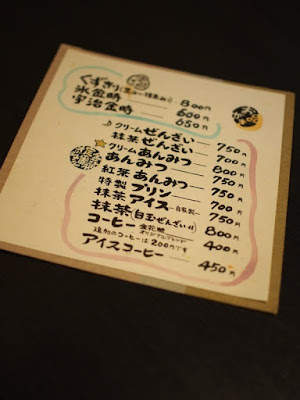 くずきり 800円
氷金時 600円
宇治金時 650円
クリームぜんざい 750円
抹茶ぜんざい 700円
クリームあんみつ 800円
あんみつ 750円
紅茶あんみつ 750円
特製プリン 700円
抹茶アイス 自家製 750円
抹茶(白玉ぜんざい付) 800円
コーヒー 400円
オリジナルブレンド
追加のコーヒーは200円です
アイスコーヒー 450円